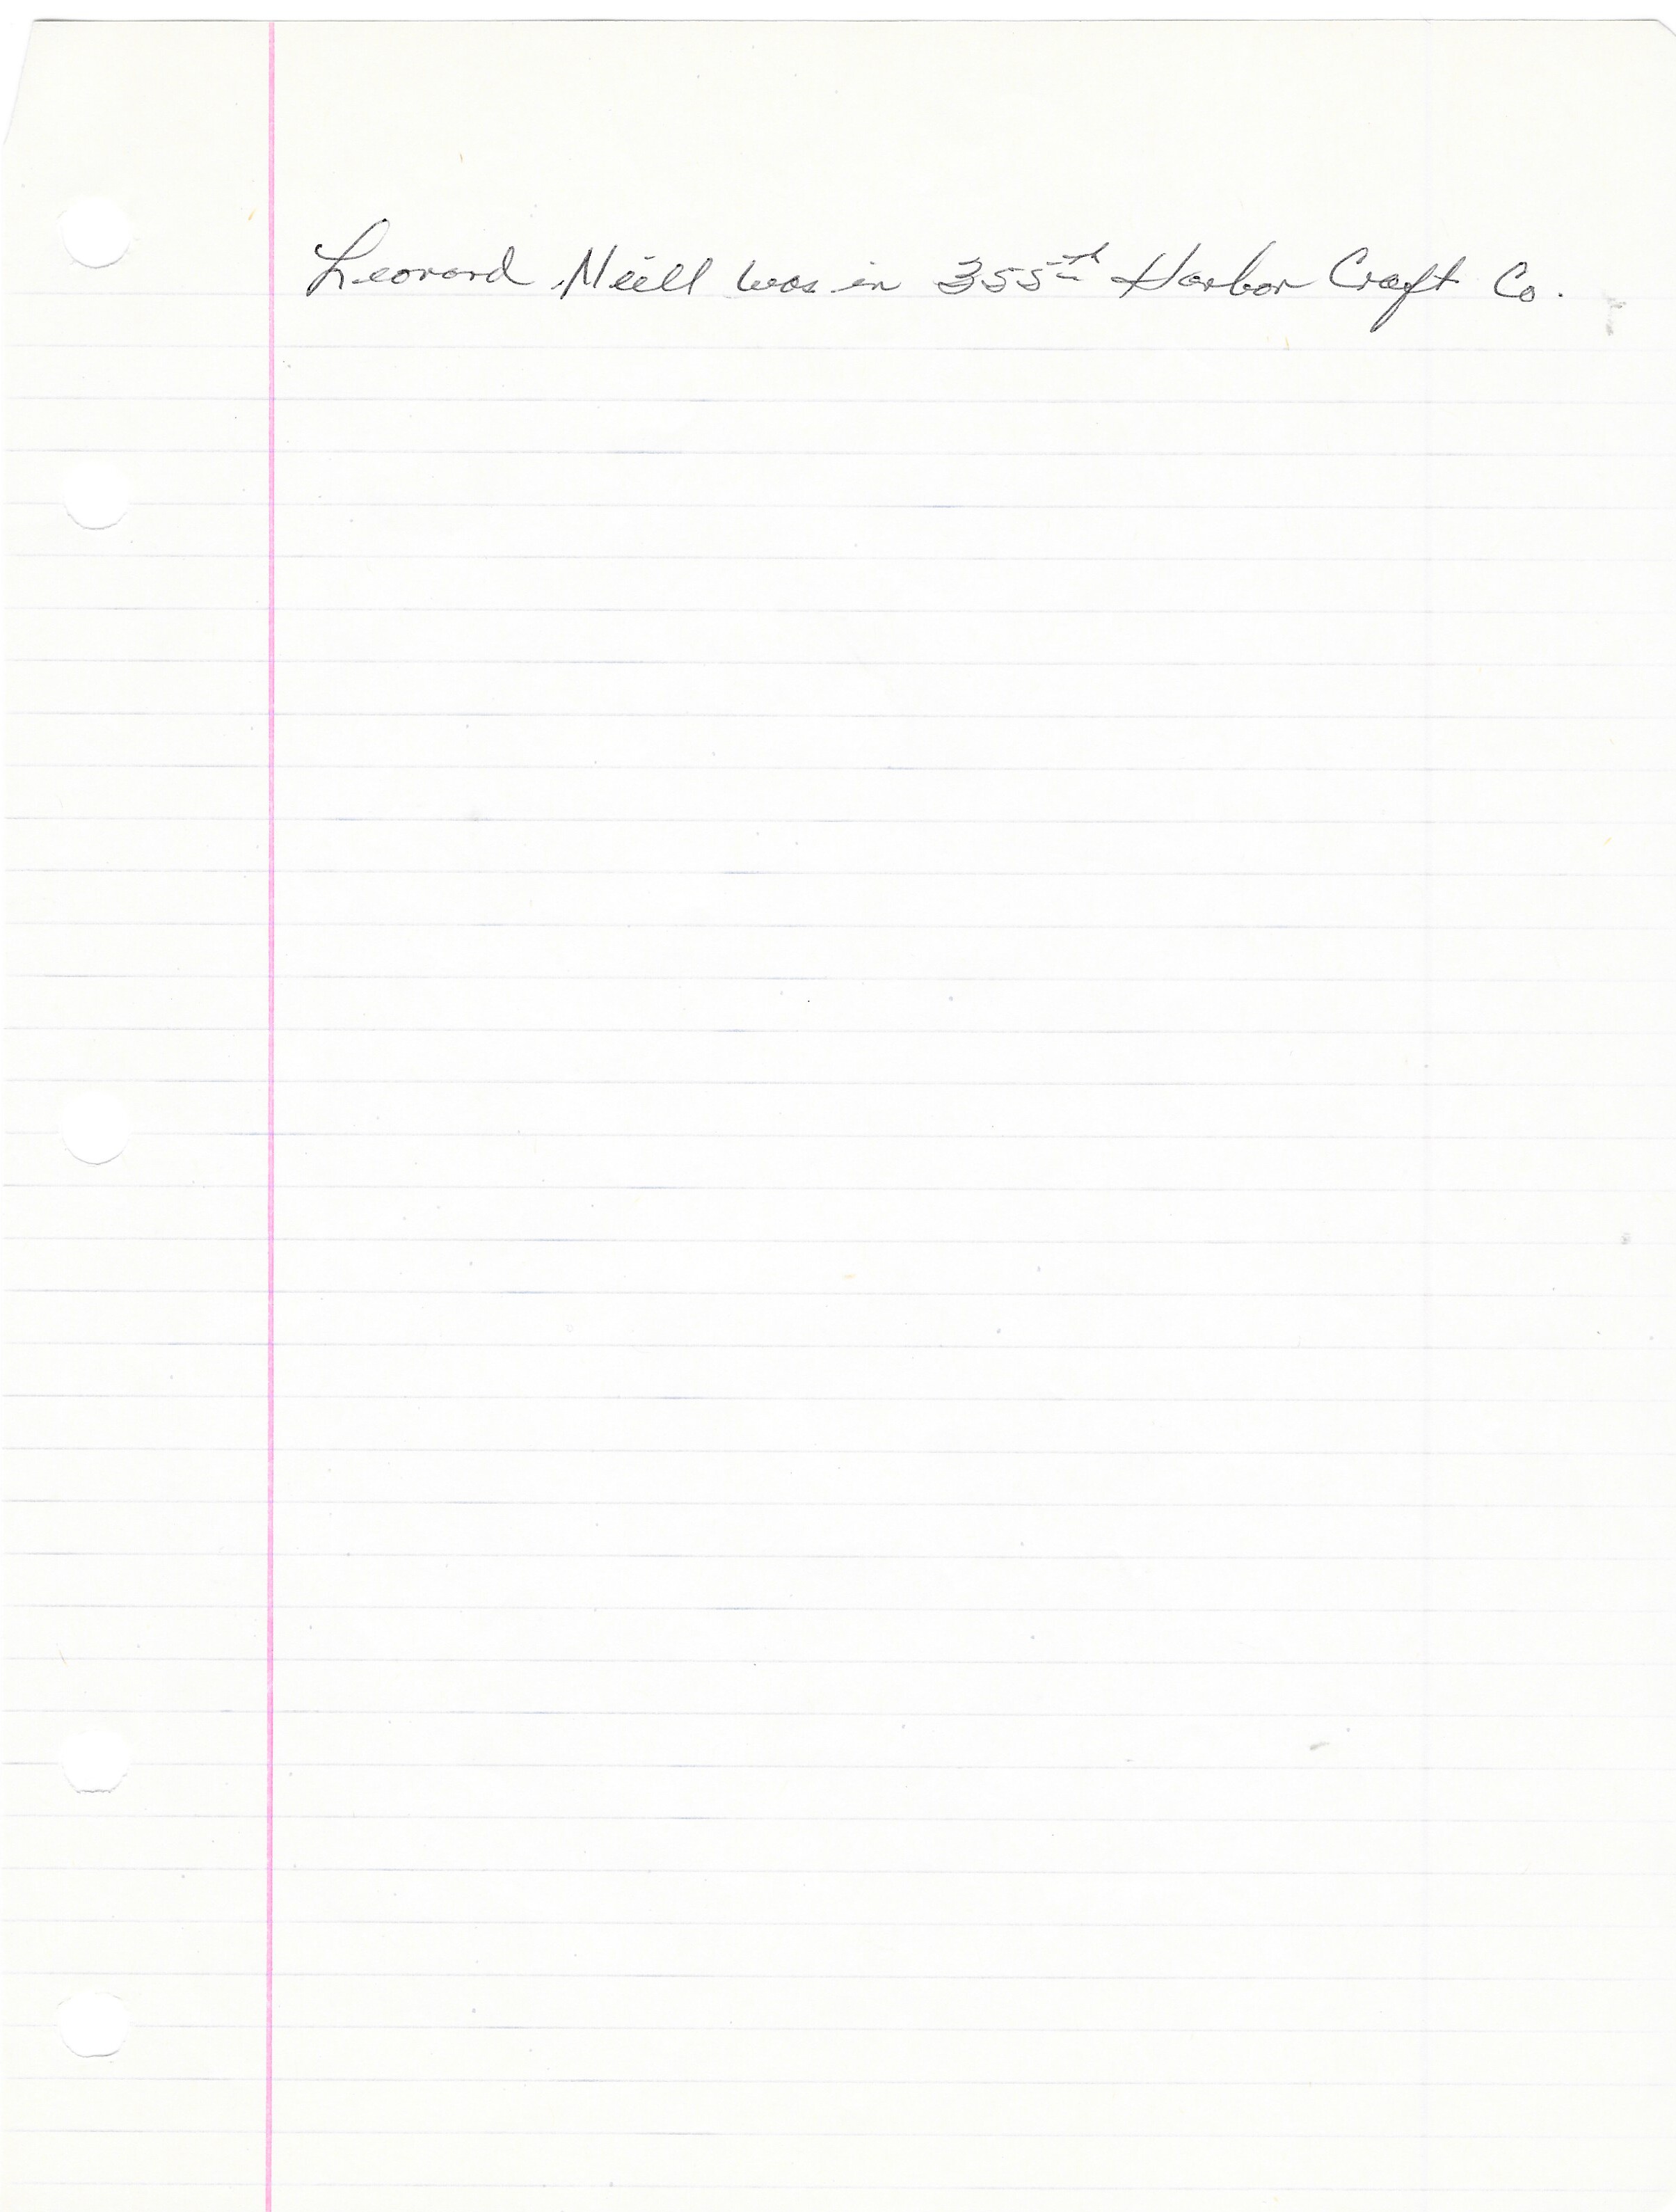 Leonard Neill was in 355th Harbor Craft Co.